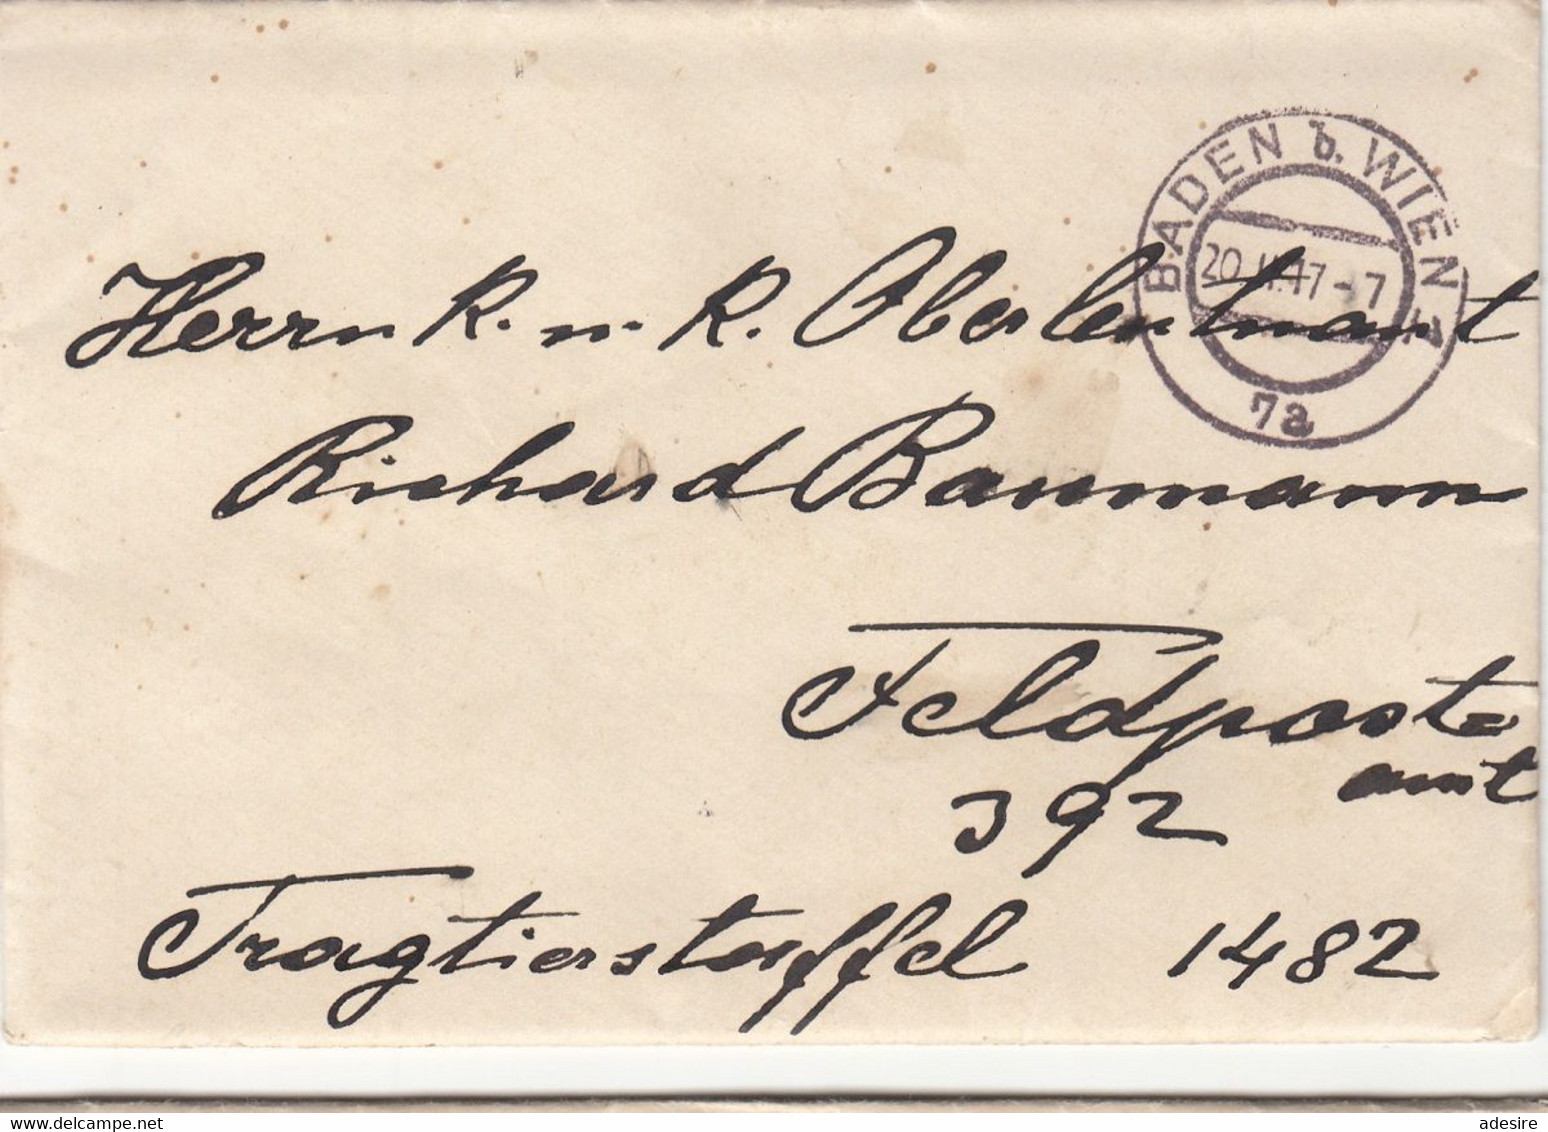 BADEN b. WIEN
20.II.17-7
7a
Herrn k. u. k. Oberleutnant
Richard Baumann
Feldpost-
amt
392
Tragtierstaffel 1482
adesire